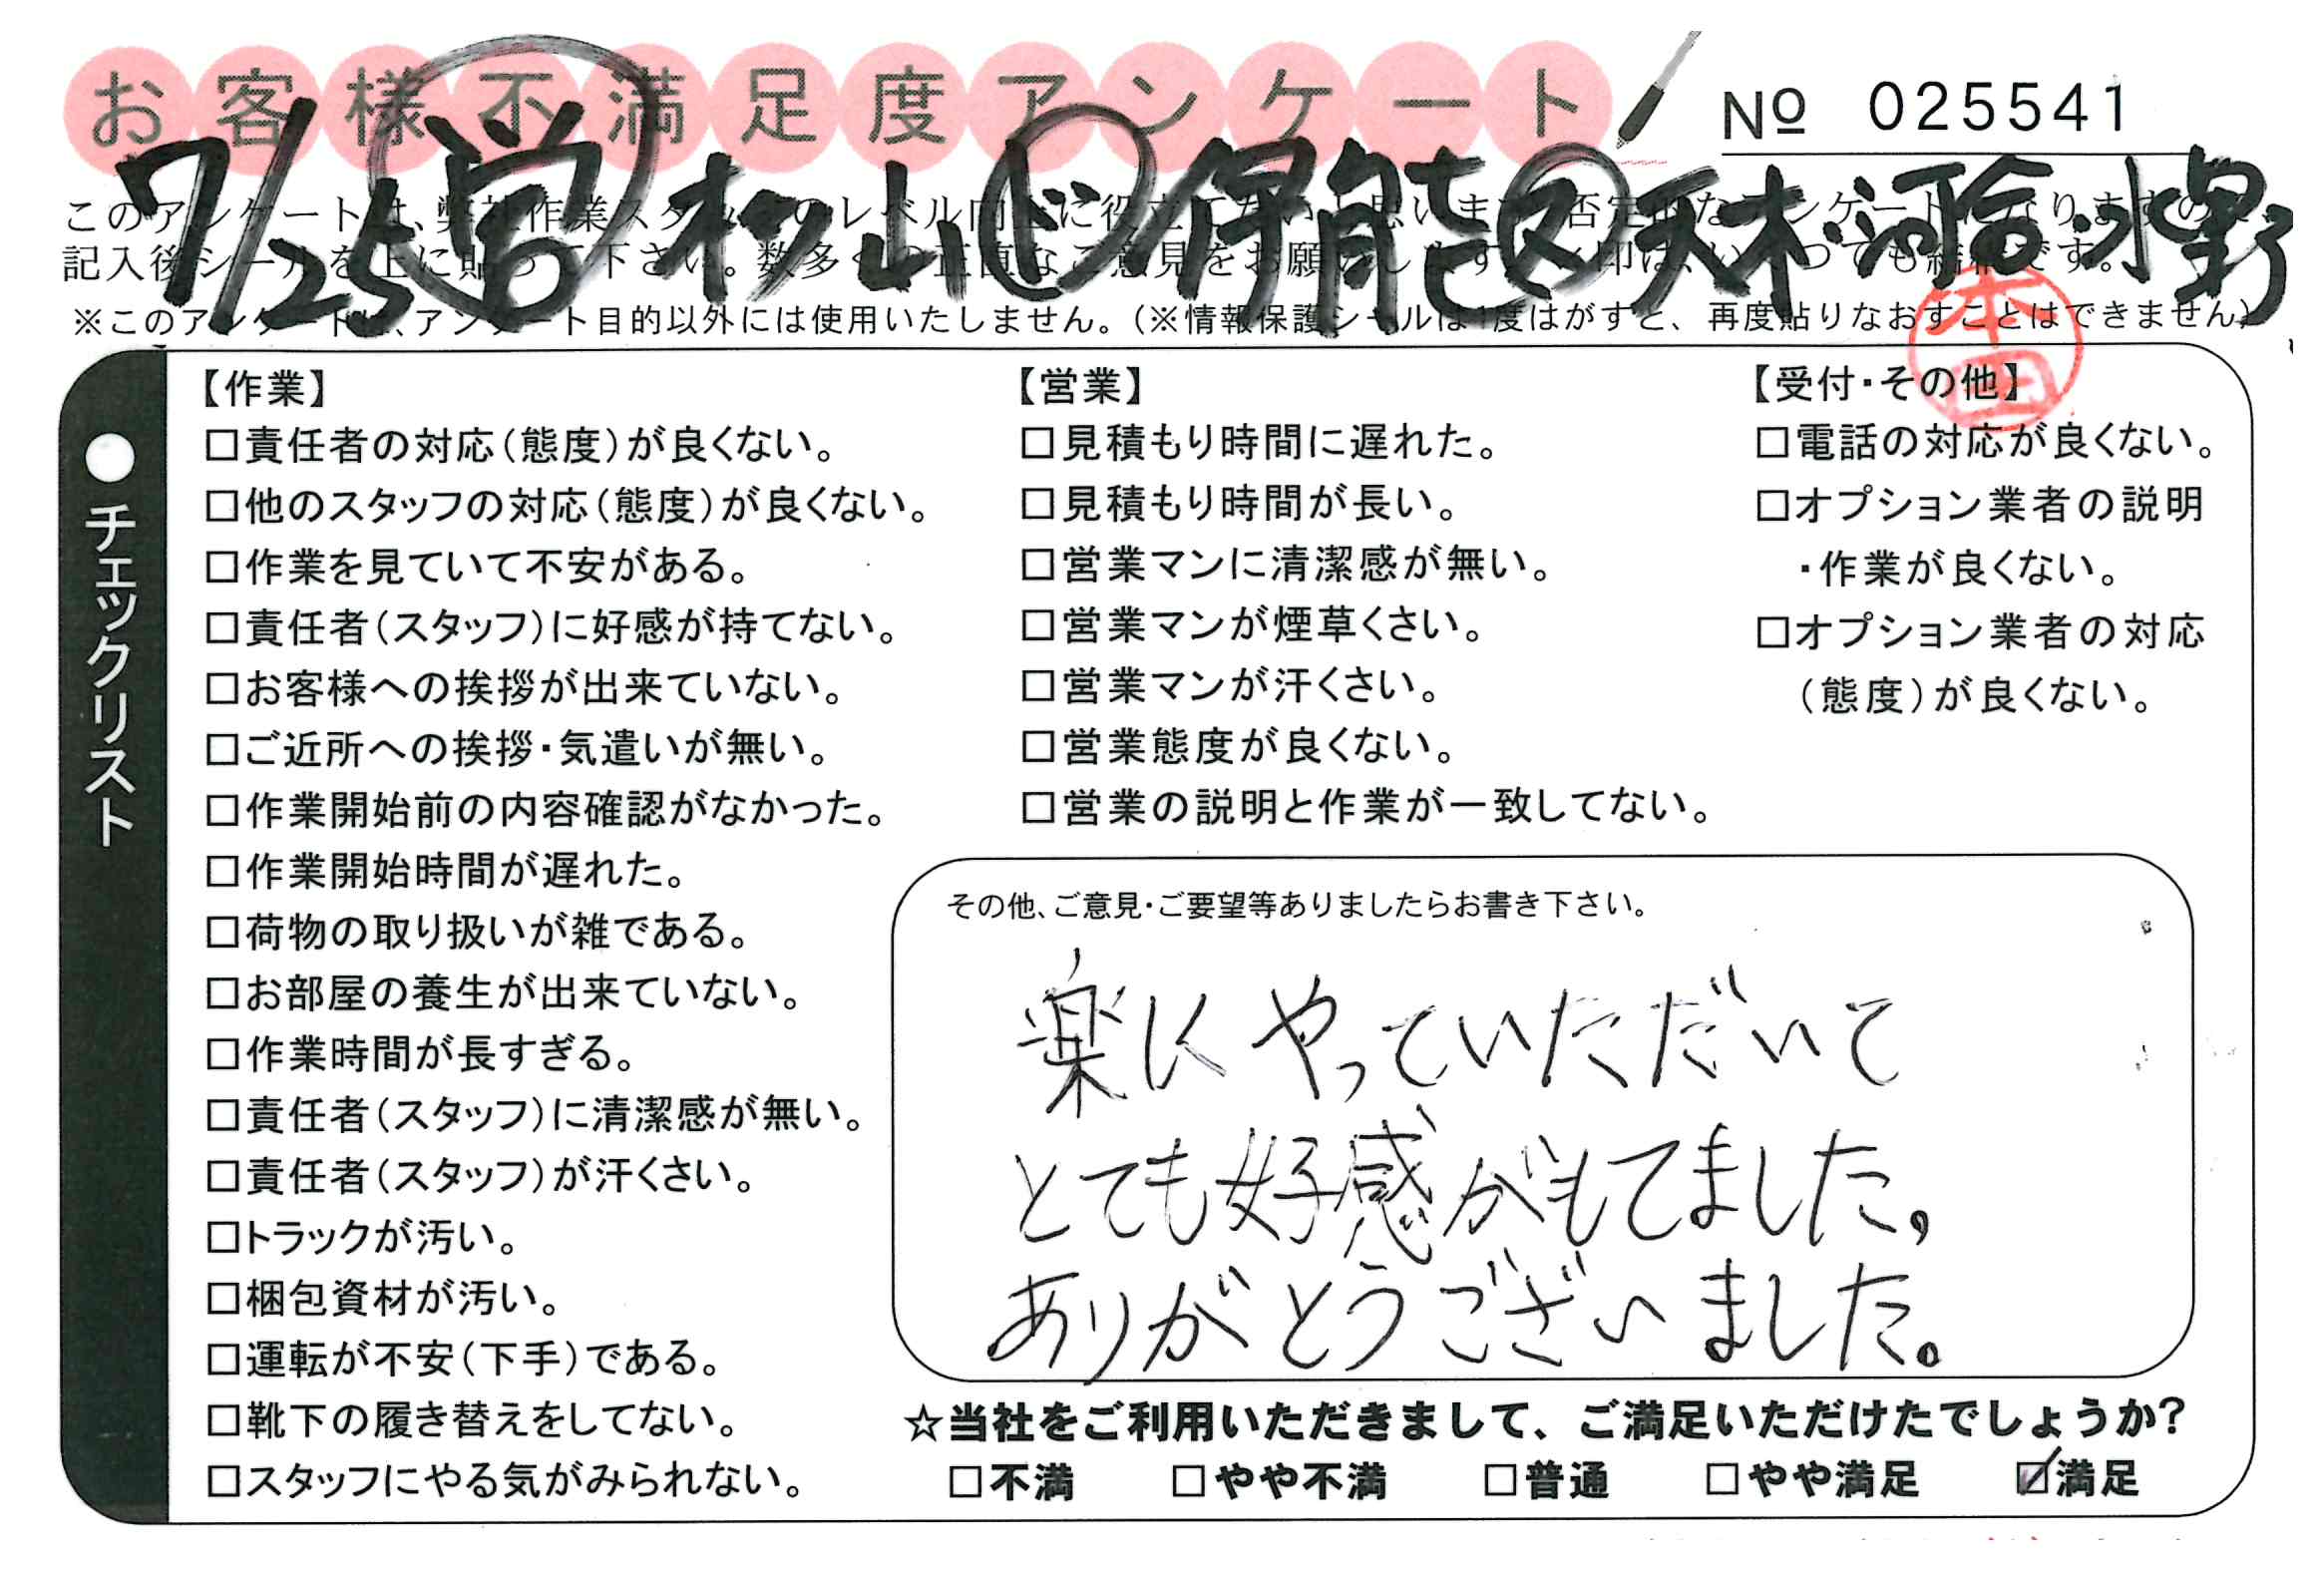 お客様不満足度アンケート
№ 025541
7/25 営 松山 ド 伊能 又 天木・河合・水野
このアンケートは、弊社作業スタッフのレベル向上に役立てたいと思います。否定的なアンケートになりますので、
記入後シールを上に貼って下さい。数多くの正直なご意見をお願いします。レ印は、いくつでも結構です。
※このアンケートは、アンケート目的以外には使用いたしません。(※情報保護シールは1度はがすと、再度貼りなおすことはできません)
本田
●チェックリスト
【作業】
□責任者の対応(態度)が良くない。
□他のスタッフの対応(態度)が良くない。
□作業を見ていて不安がある。
□責任者(スタッフ)に好感が持てない。
□お客様への挨拶が出来ていない。
□ご近所への挨拶・気遣いが無い。
□作業開始前の内容確認がなかった。
□作業開始時間が遅れた。
□荷物の取り扱いが雑である。
□お部屋の養生が出来ていない。
□作業時間が長すぎる。
□責任者(スタッフ)に清潔感が無い。
□責任者(スタッフ)が汗くさい。
□トラックが汚い。
□梱包資材が汚い。
□運転が不安(下手)である。
□靴下の履き替えをしてない。
□スタッフにやる気がみられない。
【営業】
□見積もり時間に遅れた。
□見積もり時間が長い。
□営業マンに清潔感が無い。
□営業マンが煙草くさい。
□営業マンが汗くさい。
□営業態度が良くない。
□営業の説明と作業が一致してない。
【受付・その他】
□電話の対応が良くない。
□オプション業者の説明
・作業が良くない。
□オプション業者の対応
(態度)が良くない。
その他、ご意見・ご要望等ありましたらお書き下さい。
楽にやっていただいて
とても好感がもてました。
ありがとうございました。
☆当社をご利用いただきまして、ご満足いただけたでしょうか?
□不満 □やや不満 □普通 □やや満足 ☑満足